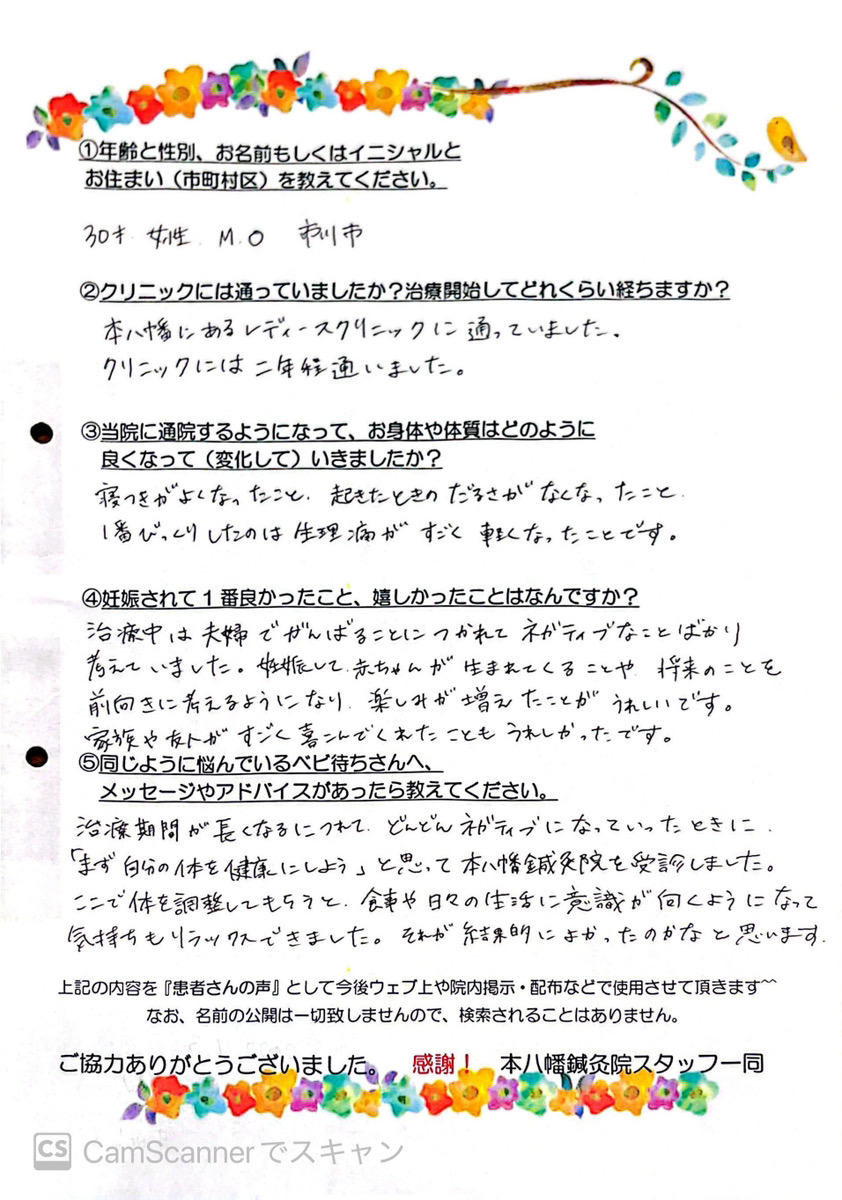 ①年齢と性別、お名前もしくはイニシャルと
お住まい（市町村区）を教えてください。
30才 女性 M.O 市川市
②クリニックには通っていましたか？治療開始してどれくらい経ちますか？
本八幡にあるレディースクリニックに通っていました。
クリニックには二年程通いました。
③当院に通院するようになって、お身体や体質はどのように
良くなって（変化して）いきましたか？
寝つきがよくなったこと、起きたときのだるさがなくなったこと、
1番びっくりしたのは生理痛がすごく軽くなったことです。
④妊娠されて1番良かったこと、嬉しかったことはなんですか？
治療中は夫婦でがんばることにつかれてネガティブなことばかり
考えていました。妊娠して赤ちゃんが生まれてくることや、将来のことを
前向きに考えるようになり、楽しみが増えたことがうれしいです。
家族や友人がすごく喜こんでくれたこともうれしかったです。
⑤同じように悩んでいるベビ待ちさんへ、
メッセージやアドバイスがあったら教えてください。
治療期間が長くなるにつれて、どんどんネガティブになっていったときに、
「まず自分の体を健康にしよう」と思って本八幡鍼灸院を受診しました。
ここで体を調整してもらうと、食事や日々の生活に意識が向くようになって
気持ちもリラックスできました。それが結果的によかったのかなと思います。
上記の内容を『患者さんの声』として今後ウェブ上や院内掲示・配布などで使用させて頂きます^^
なお、名前の公開は一切致しませんので、検索されることはありません。
ご協力ありがとうございました。 感謝！ 本八幡鍼灸院スタッフ一同
CS CamScanner でスキャン